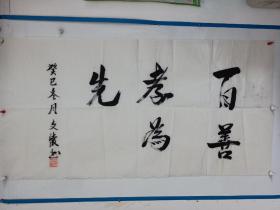 百善
孝為
先
癸巳冬月文徵書